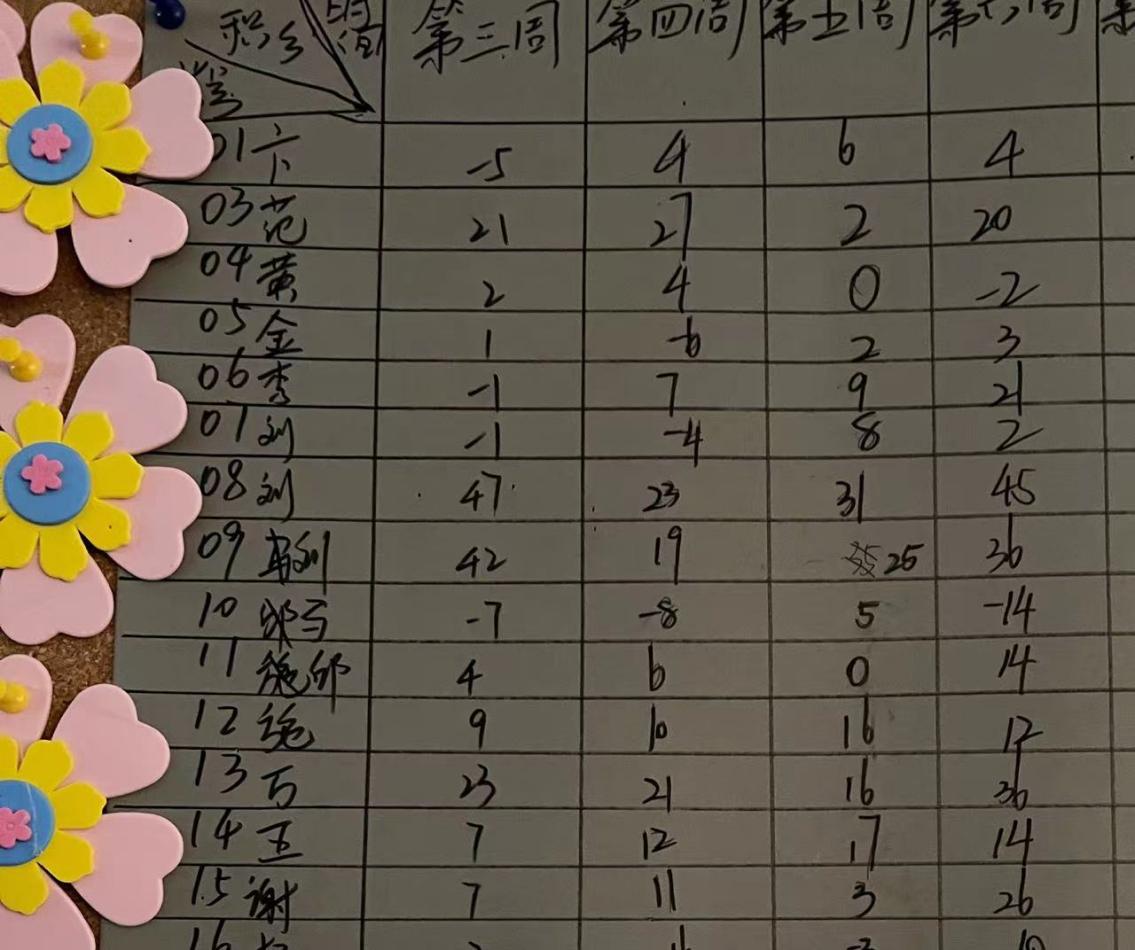 积分 时间 第三周 第四周 第五周 第六周
学号
01 卞 -5 4 6 4
03 范 21 27 2 20
04 黄 2 4 0 -2
05 金 1 -6 2 3
06 李 -1 7 9 21
07 刘 -1 -4 8 2
08 刘 47 23 31 45
09 刘 42 19 25 36
10 -7 -8 5 -14
11 4 6 0 14
12 9 10 16 12
13 万 23 21 16 36
14 王 7 12 17 14
15 谢 7 11 3 26
16